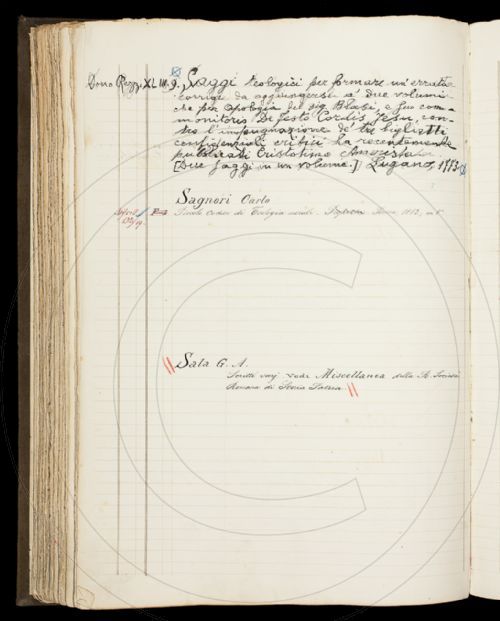 Dono Rezzi XL III. 9. Saggi teologici per formare un'errata e
corrige da aggiungersi a' due volumi
che per apologia del sig. Blasi, e suo com-
monitoris De festo Cordis Jesu, con-
tro l'impugnazione de' tre biglietti
confidenziali critici ha recentemente
pubblicati Cristotimo Amerista.
[Due Saggi in un volume.] Lugano, 1773
Sagnori Carlo
Piccolo codice di Teologia morale. 
Sala G. A.
Scritti varj vedi Miscellanea della R. Società
Romana di Storia Patria.